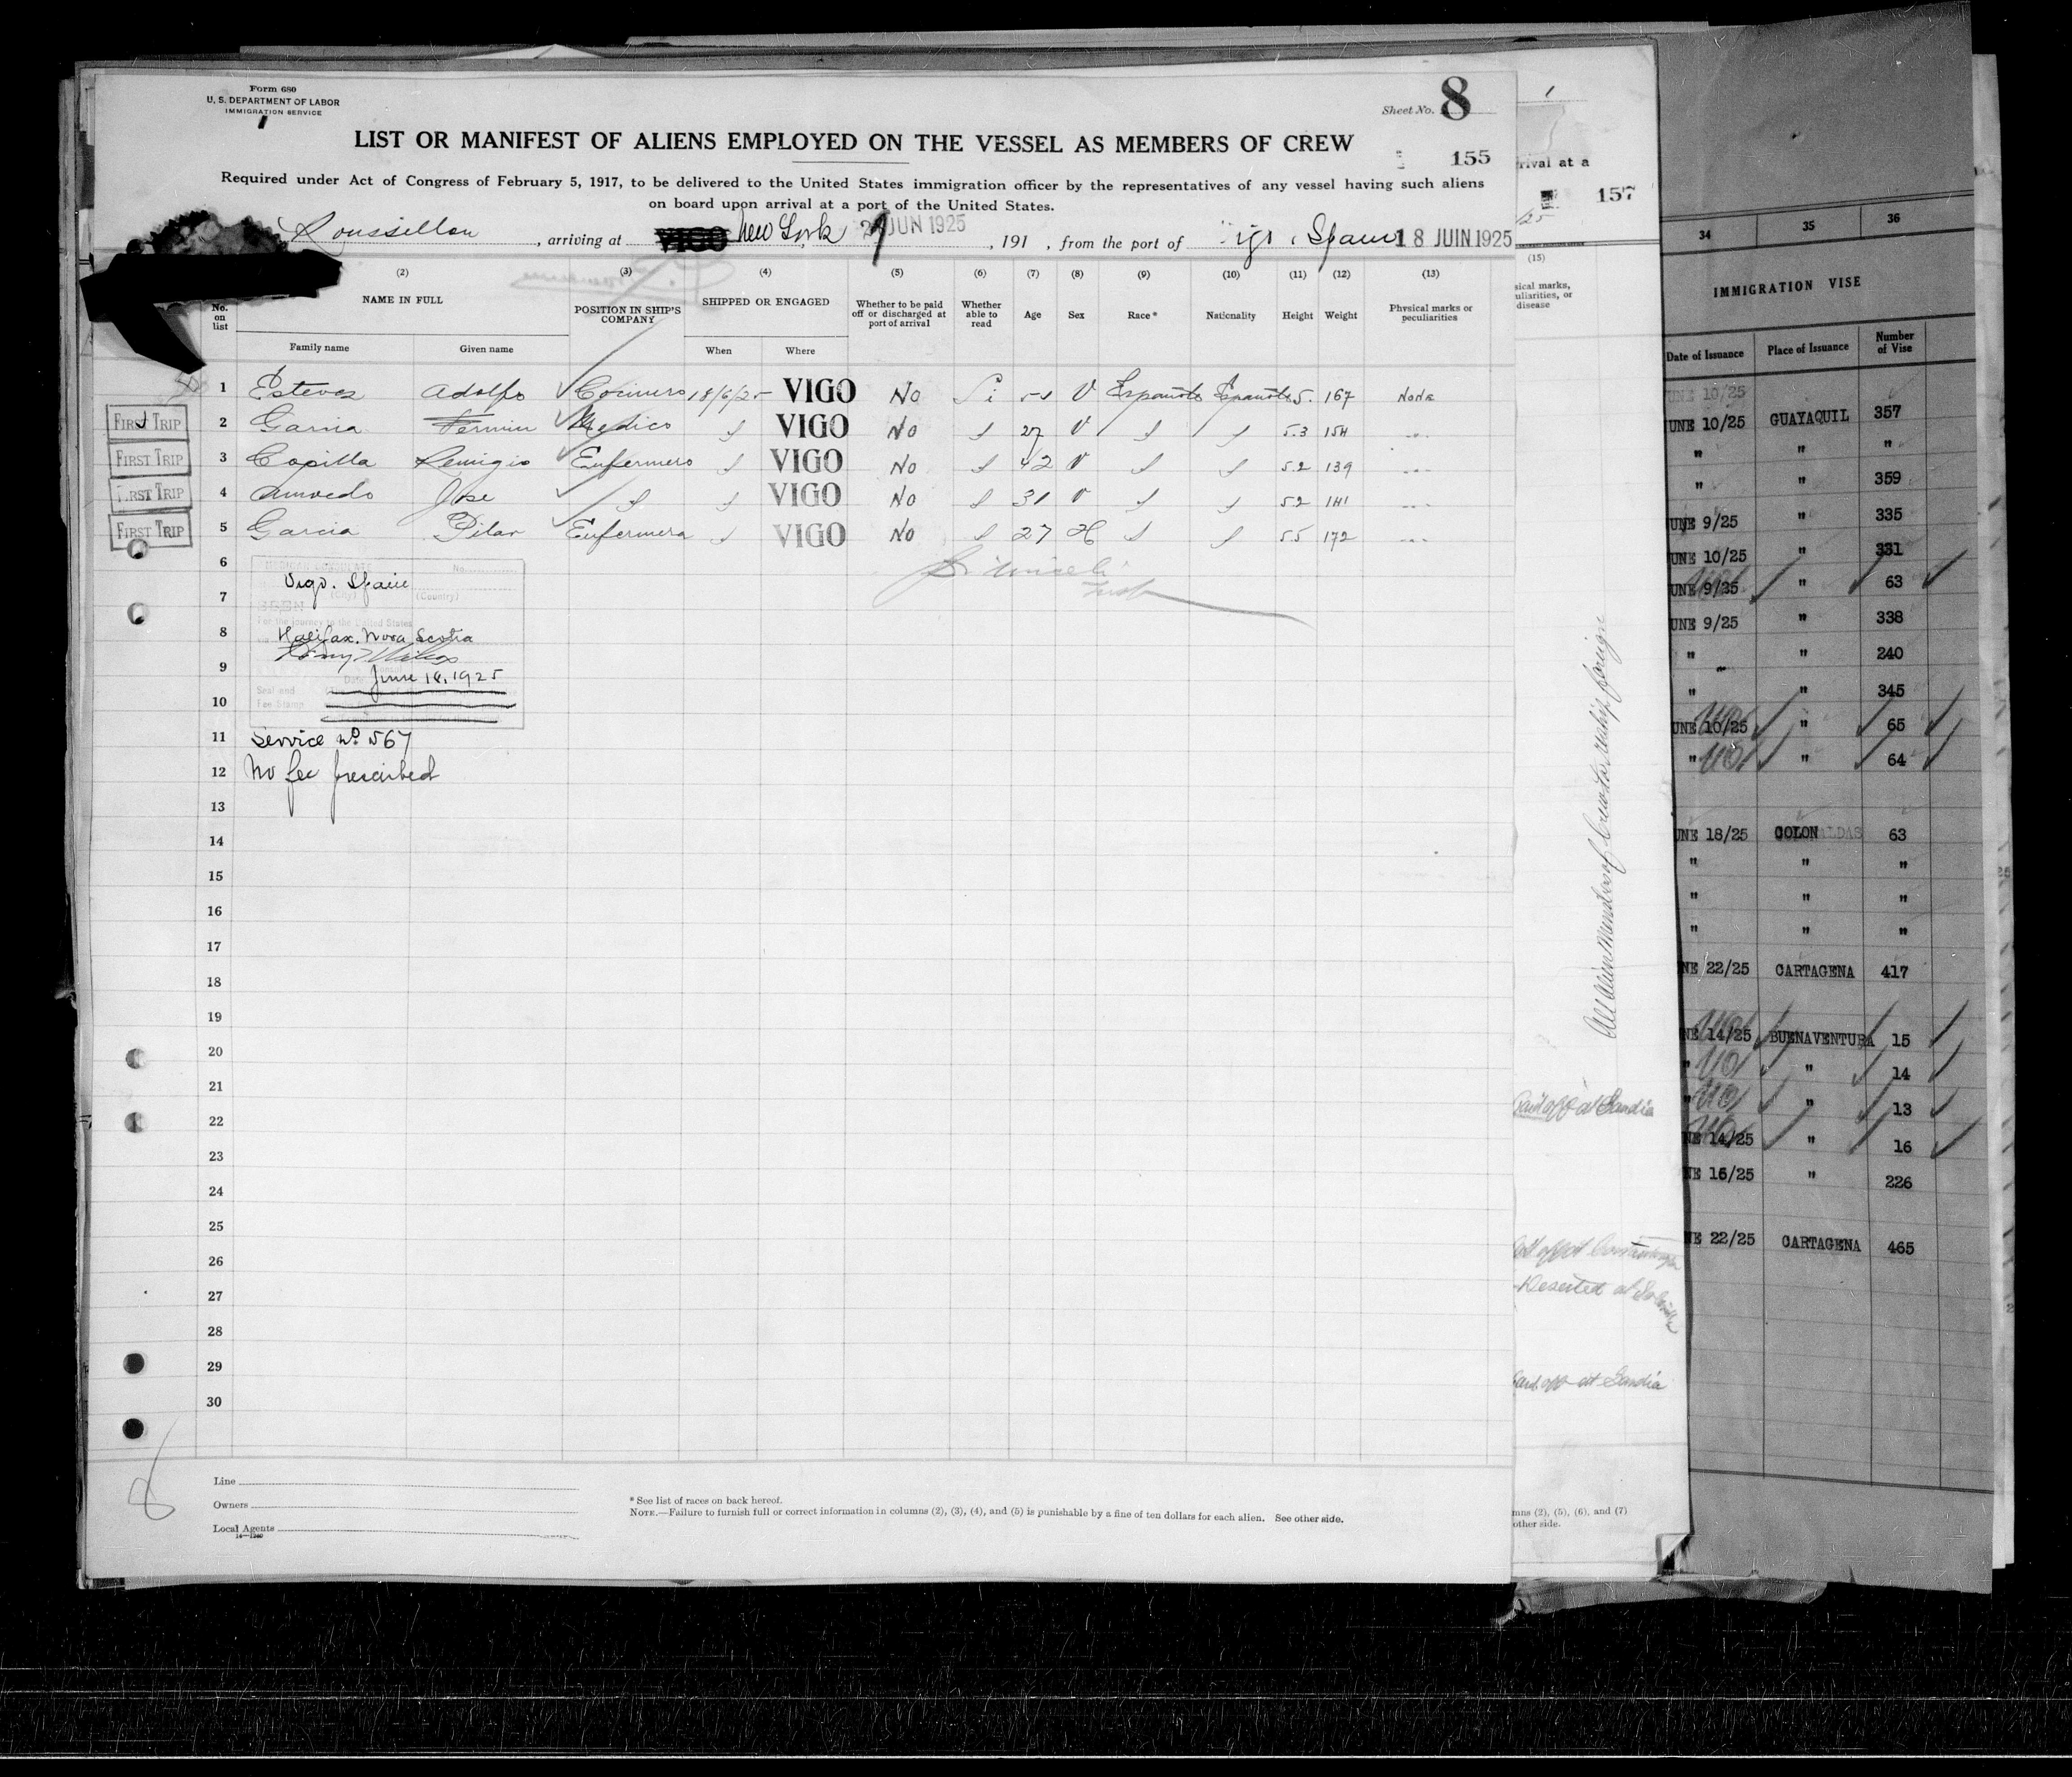 Form 680
U. S. DEPARTMENT OF LABOR
IMMIGRATION SERVICE
Sheet No. 8
LIST OR MANIFEST OF ALIENS EMPLOYED ON THE VESSEL AS MEMBERS OF CREW
155
Required under Act of Congress of February 5, 1917, to be delivered to the United States immigration officer by the representatives of any vessel having such aliens
on board upon arrival at a port of the United States.
Roussillon , arriving at VIGO New York JUN 1925 , 191 , from the port of Spain 18 JUIN 1925
(2) (3) (4) (5) (6) (7) (8) (9) (10) (11) (12) (13)
No. on list NAME IN FULL POSITION IN SHIP'S COMPANY SHIPPED OR ENGAGED Whether to be paid off or discharged at port of arrival Whether able to read Age Sex Race* Nationality Height Weight Physical marks or peculiarities
Family name Given name When Where
1 Estevez Adolfo 18/6/25 VIGO No Si V 5. 167 None
FIRST TRIP 2 Garcia Fermin Medico VIGO No 27 V 5.3 154
FIRST TRIP 3 Copilla Remigio Enfermero VIGO No 42 V 5.2 139
FIRST TRIP 4 Jose VIGO No 31 V 5.2 141
FIRST TRIP 5 Garcia Pilar Enfermera VIGO No 27 H 5.5 172
6
Vigo. Spain
(City) (Country)
7
For the journey to the United States
8 Halifax. Nova Scotia
9
June 18, 1925
Seal and
Fee Stamp
10
11 Service No. 567
12 No fee prescribed
13
14
15
16
17
18
19
20
21
22
23
24
25
26
27
28
29
30
8
Line
Owners
Local Agents
* See list of races on back hereof.
NOTE.—Failure to furnish full or correct information in columns (2), (3), (4), and (5) is punishable by a fine of ten dollars for each alien. See other side.
rival at a
157
(15)
sical marks,
uliarities, or
disease
All alien members of Crew to reship foreign
Paid off at Gandia
Deserted at
Paid off at Gandia
mns (2), (5), (6), and (7)
other side.
34 35 36
IMMIGRATION VISE
Date of Issuance Place of Issuance Number of Vise
UNE 10/25
UNE 10/25 GUAYAQUIL 357
" " "
" " 359
UNE 9/25 " 335
UNE 10/25 " 331
UNE 9/25 " 63
UNE 9/25 " 338
" " 240
" " 345
UNE 10/25 " 65
" " 64
UNE 18/25 COLON 63
" " "
" " "
" " "
NE 22/25 CARTAGENA 417
NE 14/25 BUENAVENTURA 15
" " 14
" " 13
NE 14/25 " 16
NE 16/25 " 226
NE 22/25 CARTAGENA 465